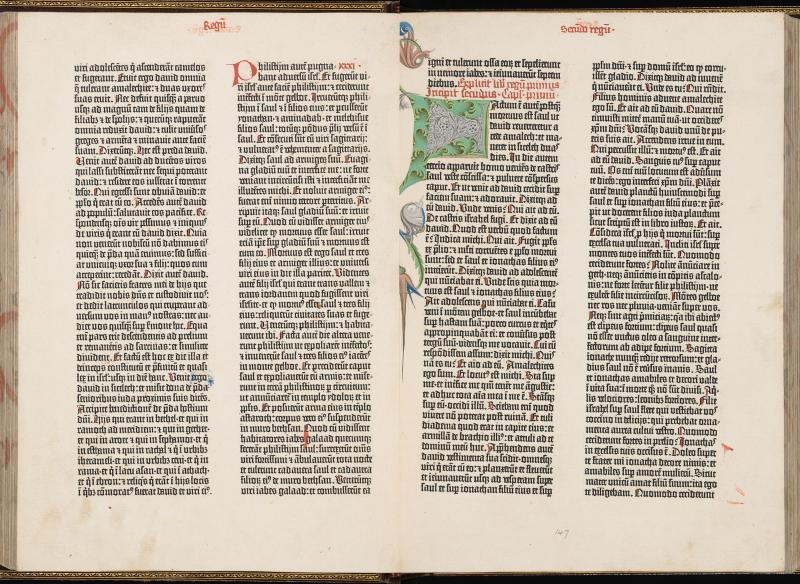 Regū
viri adolescētes q̄ ascenderāt camelos
et fugerant. Eruit ergo david omnia
q̄ tulerant amalechite: ⁊ duas uxores
suas eruit. Nec defuit quicq̄ a parvo
usq; ad magnū tam de filijs quam de
filiabz ⁊ de spolijs: ⁊ quecūq; rapuerāt
omnia reduxit david: ⁊ tulit universos
greges ⁊ armēta ⁊ minavit ante faciē
suam. Dixerūtq;. Hec est preda david.
Venit autē david ad ducētos viros
qui lassi substiterāt nec sequi poterant
david: ⁊ residere eos iusserat ī torrente
besor. Qui egressi sunt obviā david: et
pplo q̄ erat cū eo. Accedēs autē david
ad populū: salutavit eos pacifice. Re-
spondensq; oīs vir pessimus ⁊ iniquus
de viris q̄ ierant cū david dixit. Quia
non venerūt nobiscū nō dabimus eis
quicq̄ de pda quā eruimus: sed suffici-
at unicuiq; uxor sua ⁊ filij: quos cum
acceperint: recedāt. Dixit autē david.
Nō sic facietis fratres mei de hijs que
tradidit nobis dn̄s et custodivit nos:
et dedit latrunculos qui eruperant ad-
versum vos in manꝰ nostras: nec au-
diet vos quisq̄ sup sermone hoc. Equa
em̄ pars erit descendentis ad prelium
et remanentis ad sarcinas: et similiter
divident. Et factū est hoc ex die illa et
deinceps constitutū et pfinitū et quasi
lex in isrl̄: usq; in diē hanc. Venit ergo
david in sicelech: et misit dona de pda
senioribus iuda proximis suis dicēs.
Accipite benedictionē de pda hostium
dn̄i. Hijs qui erant in bethel: et qui in
ramoth ad meridiem: ⁊ qui in gether:
et qui in aroer ⁊ qui in sephamot: et q̄
in esthama ⁊ qui in rachal ⁊ q̄ ī urbibz
ihezameli: et qui in urbibz ceni: et q̄ in
rama: et q̄ ī lacu asan: et qui ī achach:
et q̄ ī ebron: ⁊ reliqs q̄ erāt ī hijs locis
ī qbz cōmoratꝰ fuerat david et viri eiꝰ.
Philistijm autē pugna- xxxi
bant adversū isrl̄. Et fugerūt vi-
ri isrl̄ ante faciē philistijm: ⁊ ceciderunt
infecti ī mōte gelboe. Irrueruntq; phili-
stijm ī saul ⁊ ī filios eius: et pcusserūt
yonathan ⁊ aminadab ⁊ melchisue
filios saul: totūq; pōdus plij versū ē ī
saul. Et cōsecuti sūt eū viri sagittarij:
⁊ vulneratꝰ ē vehementer a sagittarijs.
Dixitq; saul ad armigerū suū. Evagi-
na gladiū tuū et interfice me: ne forte
veniant incircūcisi isti ⁊ interficiāt me
illudētes michi. Et noluit armiger eiꝰ:
fuerat em̄ nimio terrore pterritus. Ar-
ripuit itaq; saul gladiū suū: et irruit
sup eū. Quod cū vidisset armiger eiꝰ
videlicet q̄ mortuus esset saul: irruit
etiā ip̄e sup gladiū suū ⁊ mortuus est
cum eo. Mortuus est ergo saul et tres
filij eius et armiger illius: et universi
viri eius in die illa pariter. Videntes
autē filij isrl̄ qui erant trans vallem ⁊
trans iordanem quod fugissent viri
isrlite: et q̄ mortuꝰ esset saul ⁊ tres filij
eiꝰ: reliquerūt civitates suas et fuge-
runt. Veneruntq; philistijm: ⁊ habita-
verunt ibi. Facta autē die altera vene-
runt philistijm ut spoliarēt infectos:
⁊ invenerūt saul ⁊ tres filios eiꝰ iacētes
in monte gelboe. Et preciderūt caput
saul et spoliaverūt eū armis: ⁊ mise-
runt in terrā philistinoꝝ p circuitum:
ut annūciaret̄ in templo ydoloꝝ et in
pplis. Et posuerūt arma eius in tēplo
astaroth: corpus vero eiꝰ suspenderūt
in muro bethsan. Quod cū vidissent
habitatores iabes galaad quecunq;
fecerāt philistijm saul: surrexerūt oīnes
viri fortissimi ⁊ ābulaverūt tota nocte
et tulerunt cadavera saul et cadavera
filioꝝ eiꝰ de muro bethsan. Veneruntq;
viri iabes galaad: et combusserūt ea
Secūdi regū
igni et tulerunt ossa eoꝝ et sepelierunt
in nemore iabes: ⁊ ieiunaverūt septem
diebus. Explicit lib̄ regū primus
Incipit secūdus. Caplm primū
Factum ē autē postq̄
mortuus est saul ut
david reverteretur a
cede amalech: et ma-
neret in sicelech duos
dies. In die autem
tercia apparuit homo veniēs de castris
saul veste cōscissa: ⁊ pulvere cōspersus
caput. Et ut venit ad david cecidit sup
faciem suam: ⁊ adoravit. Dixitq; ad
eū david. Unde venis? Qui ait ad eū.
De castris israhel fugi. Et dixit ad eū
david. Quod est verbū quod factum
ē? Indica michi. Qui ait. Fugit ppls
ex plio: ⁊ multi corruentes ex pplo mortui
sunt: sed et saul et ionathas filius eiꝰ
interierūt. Dixitq; david ad adolescentē
qui nūciabat ei. Unde scis quia mor-
tuus est saul ⁊ ionathas filius eius?
Ait adolescens qui nūciabat ei. Casu
veni ī montem gelboe: et saul incūbebat
sup hastam suā: porro currus et eqtes
appropinquabāt ei: et cōversus post
tergū suū: vidensq; me vocavit. Cui cū
respōdissem assum: dixit michi. Quis-
nā es tu? Et aio ad eū. Amalechites
ego sum. Et locutꝰ est michi. Sta sup
me: et interfice me: qm̄ tenēt me āgustie:
et adhuc tota aīa mea ī me ē. Stāsq;
sup eū: occidi illū. Sciebam em̄ quod
vivere nō poterat post ruinā. Et tuli
diadema quod erat in capite eius: et
armillā de brachio illiꝰ: et attuli ad te
dominū meū huc. Apprehendens autē
david vestimenta sua scidit: omnesq;
viri q̄ erāt cū eo: ⁊ planxerūt et fleverūt
et ieiunaverūt usq; ad vesperam super
saul et sup ionathan filiū eius et sup
pplm dn̄i: ⁊ sup domū isrl̄: eo q̄ corru-
issēt gladio. Dixitq; david ad iuvenē
q̄ nūciaverat ei. Unde es tu? Qui rn̄dit.
Filius hominis advene amalechite
ego sū. Et ait ad eū david. Quare nō
timuisti mittē manū tuā: ut occideres
xpm̄ dn̄i? Vocāsq; david unū de pu-
eris suis ait. Accedens irrue in eum.
Qui percussit illū: ⁊ mortuꝰ est. Et ait
ad eū david. Sanguis tuꝰ sup caput
tuū. Os em̄ tuū locutum est adversū
te dicēs: ego interfeci xpm̄ dn̄i. Plāxit
autē david planctū huiuscemodi sup
saul et sup ionathan filiū eius: et pre-
cepit ut docerent filios iuda planctum
sicut scriptū est in libro iustoꝝ. Et ait.
Cōsidera isrl̄ p hijs q̄ mortui sūt: sup
excelsa tua vulnerati. Incliti isrl̄ super
montes tuos infecti sūt. Quomodo
ceciderunt fortes? Nolite annūciare in
geth: neq; annūcietis in cōpitis ascalo-
nis: ne forte letēt̄ filie philistijm: ne
exultēt filie incircūcisoꝝ. Mōtes gelboe
nec ros nec pluvia: veniāt super vos.
Neq; sint agri pmiciaꝝ: qa ibi abiectꝰ
est clipeus fortium: clipeus saul quasi
nō esset unctus oleo: a sanguine inter-
fectorum ab adipe fortium. Sagitta
ionathe nunq̄ redijt retrorsum: et gla-
dius saul nō ē reversus inanis. Saul
et ionathas amabiles et decori valde
ī vita sua: ī morte q̄q; nō sūt divisi. A-
qlis velociores: leonibz forciores. Filie
israhel sup saul flete: qui vestiebat vos
coccino in delicijs: qui prebebat orna-
menta aurea cultui vestro. Quomodo
ceciderunt fortes in prelio? Ionathas
in excelsis tuis occisus ē. Doleo super
te frater mi ionatha decore nimis: et
amabilis sup amorē mulierū. Sicut
mater unicū amat filiū suum: ita ego
te diligebam. Quomodo ceciderunt
147